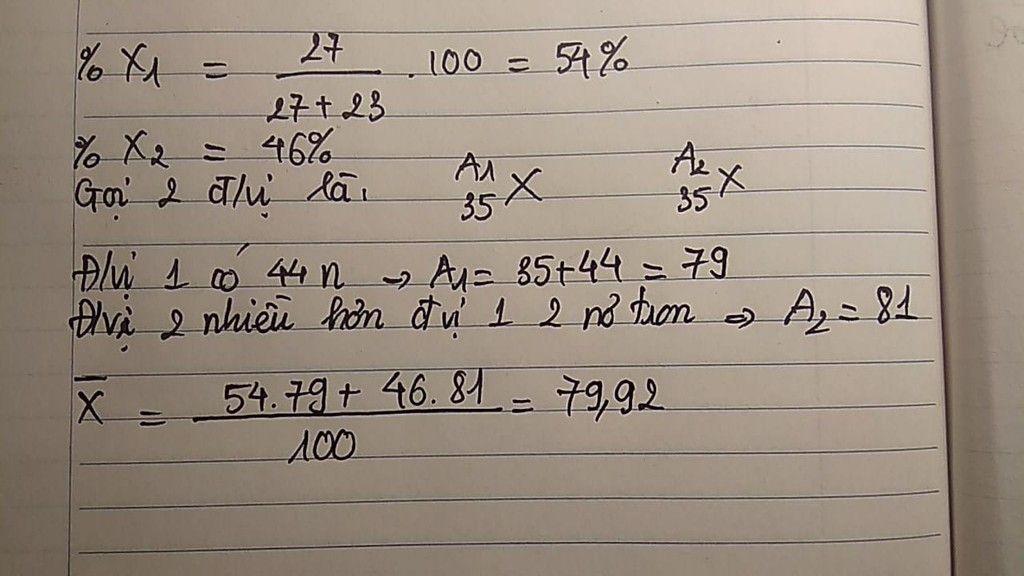 % X1 = 27 / 27 + 23 . 100 = 54%
% X2 = 46%
Gọi 2 đ/vị là, A1 35 X A2 35 X
Đ/vị 1 có 44 n → A1 = 35+44 = 79
Đ/vị 2 nhiều hơn đvị 1 2 nơ tron ⇒ A2 = 81
X̄ = 54.79 + 46.81 / 100 = 79,92